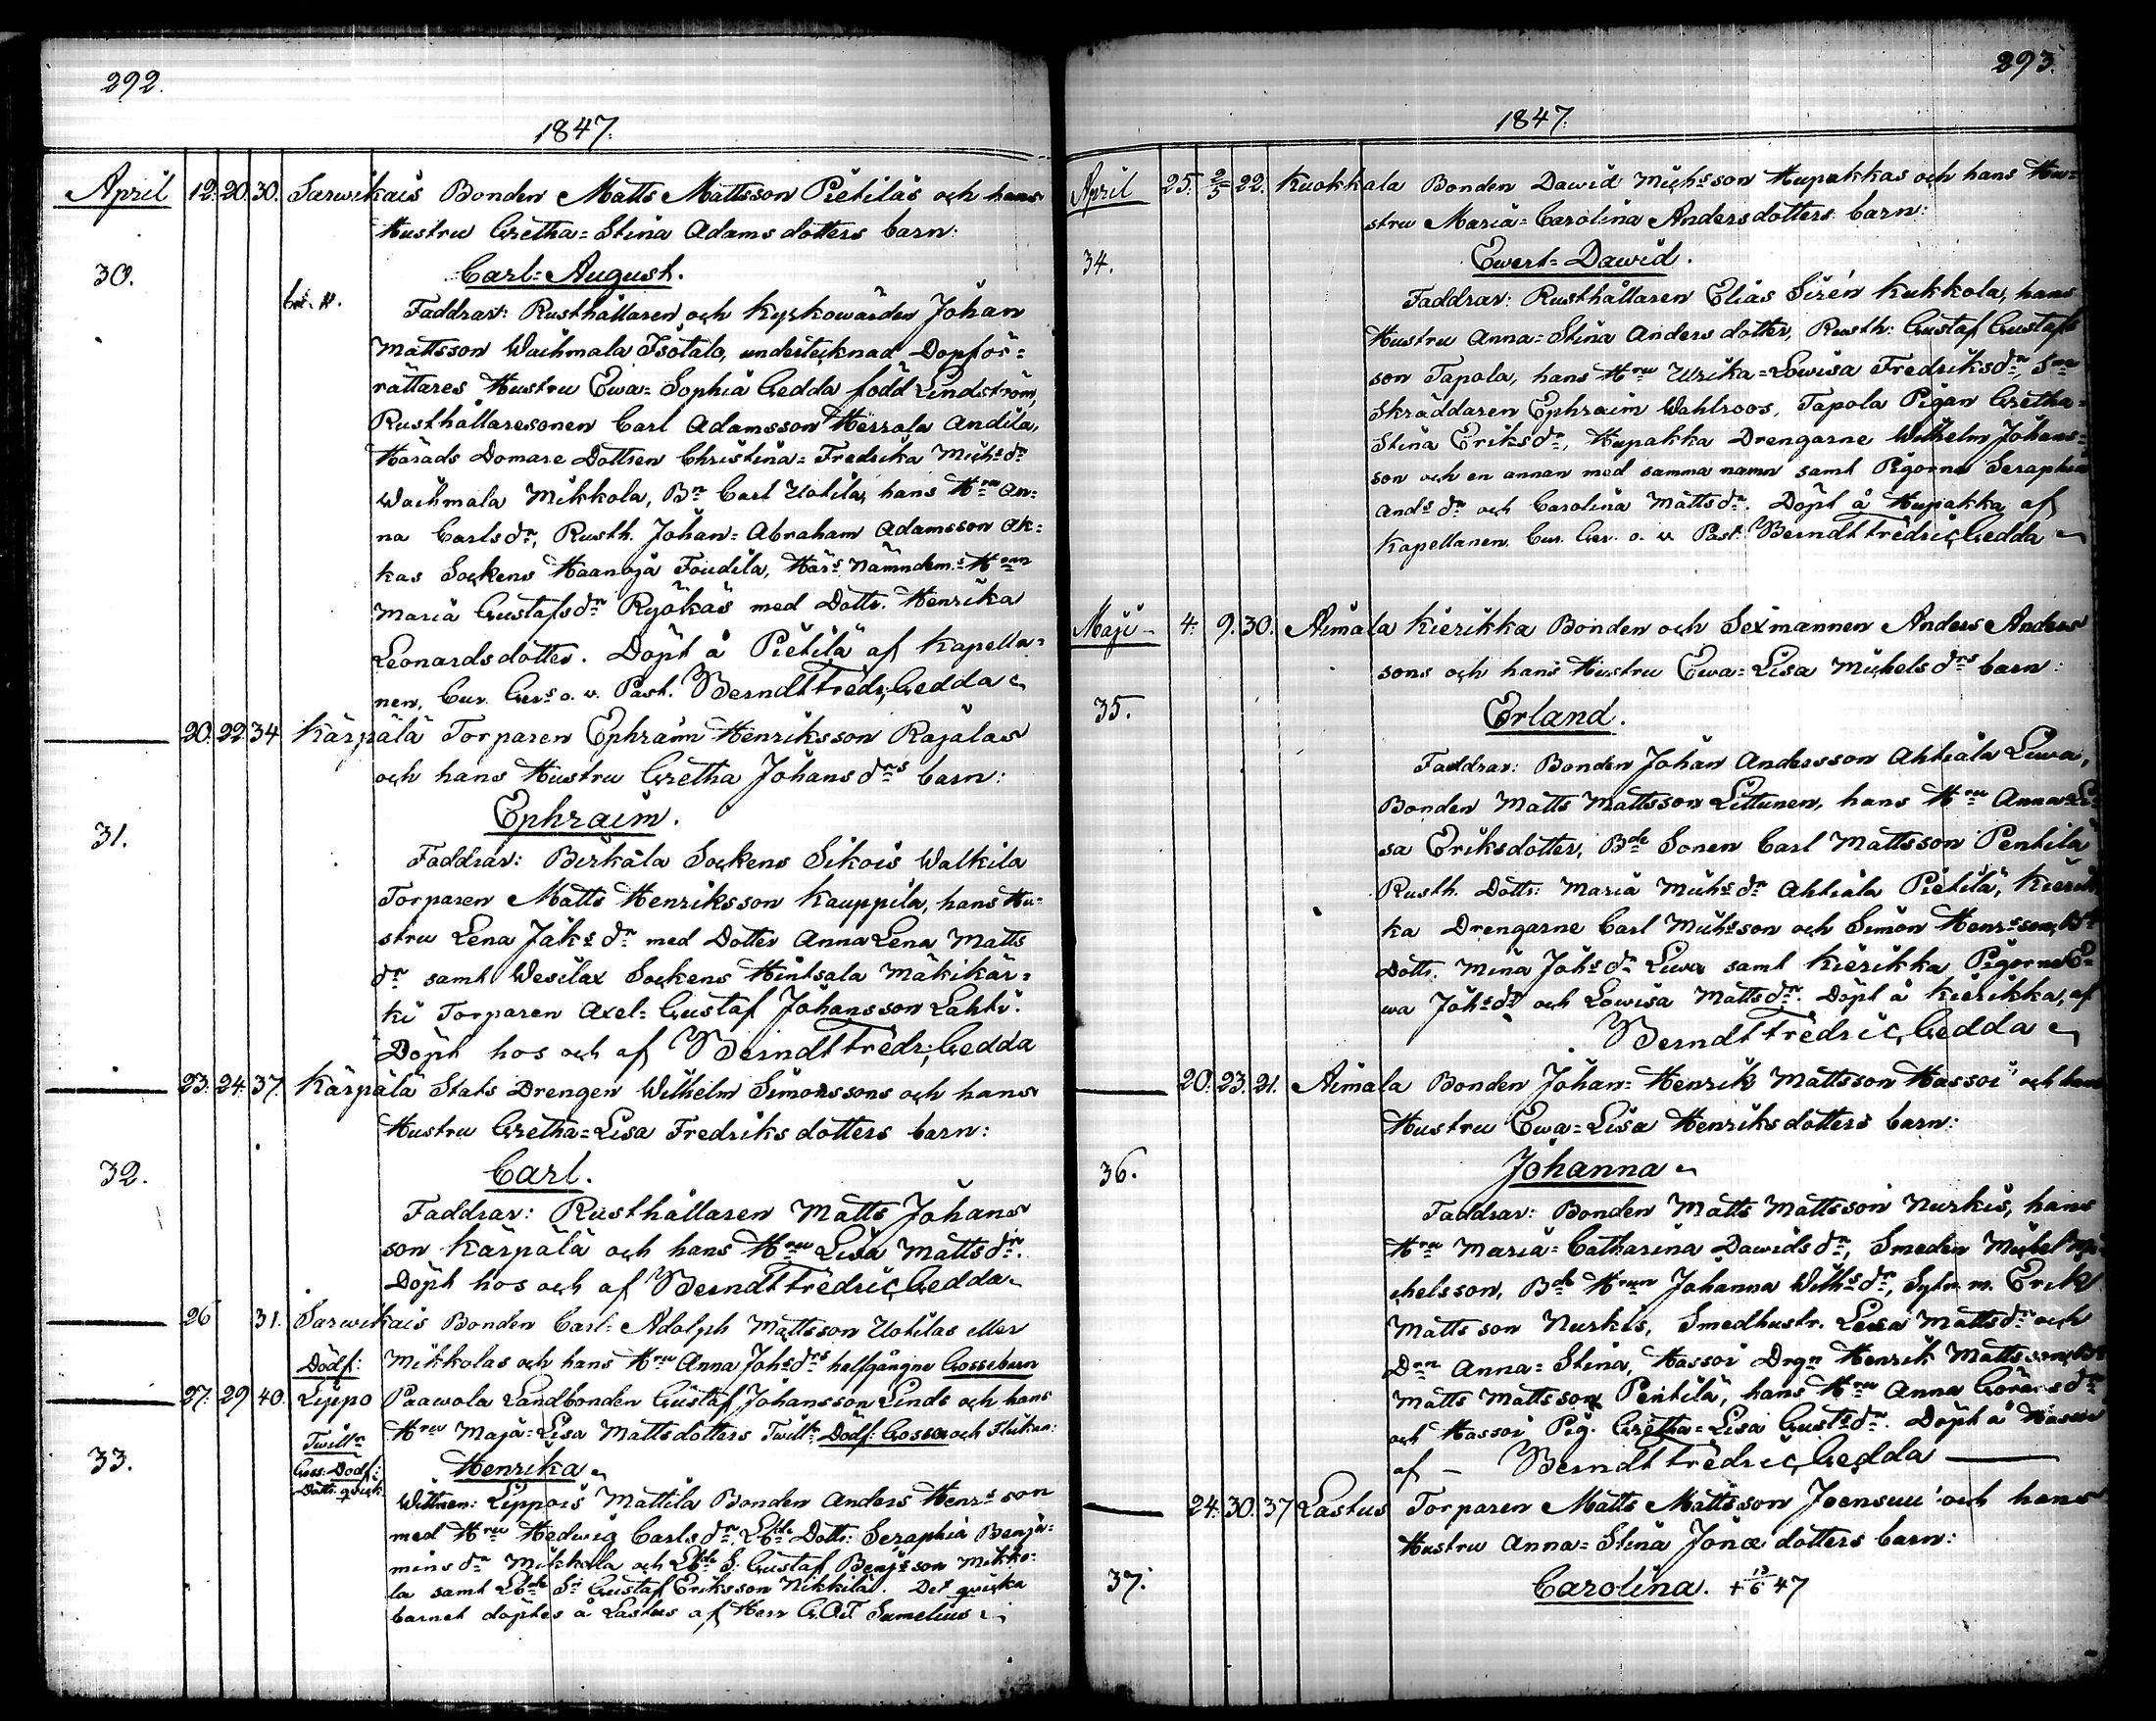 292.
1847.
April 12. 20. 30. Sarwikais Bonden Matts Mattsson Pietilas och hans
Hustru Gretha=Stina Adamsdotters barn:
30. Carl=August.
Faddrar: Rusthållaren och Kyrkowärden Johan
Mattsson Waihmala Isotalo, undertecknad Dopför=
rättares Hustru Ewa=Sophia Gedda född Lindström,
Rusthållaresonen Carl Adamsson Herrala Andila,
Härads Domare Dottren Christina=Fredrika Michs dr
Waihmala Mikkola, Bn Carl Uotila, hans Hru An=
na Carlsdr, Rusth. Johan=Abraham Adamsson Ak=
kas Sockens Haanoja Foudila, Härs Nämndem:s Hrun
Maria Gustafsdr Ryökäs med Dottr. Henrika
Leonardsdotter. Döpt å Pietilä af Kapella=
nen, Cur. Gers o. v. Past. Berndt Fredr: Gedda
20. 22. 34 Kärpälä Torparen Ephraim Henriksson Rajalas
och hans Hustru Gretha Johansdrs barn:
31. Ephraim.
Faddrar: Birkala Sockens Sikois Walkila
Torparen Matts Henriksson Kauppila, hans Hu=
stru Lena Jaks dr med Dotter Anna Lena Matts
dr samt Wesilax Sockens Hintsala Mäkikär=
ki Torparen Axel=Gustaf Johansson Lahti.
Döpt hos och af Berndt Fredr: Gedda
23. 24. 37. Kärpälä Stats Drengen Wilhelm Simonssons och hans
Hustru Gretha=Lisa Fredriksdotters barn:
32. Carl.
Faddrar: Rusthållaren Matts Johans
son Kärpälä och hans Hru Lisa Mattsdr.
Döpt hos och af Berndt Fredric Gedda
26 31. Sarwikais Bonden Carl=Adolph Mattsson Uotilas eller
Dödf: Mikkolas och hans Hru Anna Johsdrs halfgångne Gossebarn
27. 29 40. Lippo Paawola Landbonden Gustaf Johansson Linds och hans
Hru Maja=Lisa Mattsdotters Twill: Dödf: Gosse och Flicka:
33. Twill:r
Goss. Dödf: Henrika
Dottr. qvick
Wittnen: Lippois Mattila Bonden Anders Henrs son
med Hru Hedwig Carlsdr, Lbde Dottr: Seraphia Benja=
mins dr Mikkola och Lbde S: Gustaf Benjs son Mikko=
la samt Lbde Sn Gustaf Eriksson Nikkilä. Det qvicka
barnet döptes å Lastus af Herr G.O.F Sumelius
293.
1847.
April 25. 2/5 22. Kuokkala Bonden Dawid Michsson Hupakkas och hans Hu=
stru Maria=Carolina Andersdotters barn:
34. Ewert=Dawid.
Faddrar: Rusthållaren Elias Sirén Kukkola, hans
Hustru Anna=Stina Andersdotter, Rusth: Gustaf Gustafs
son Tapola, hans Hru Ulrika=Lowisa Fredriksdr,
Skräddaren Ephraim Wahlroos, Tapola Pigan Gretha=
Stina Eriksdr, Hupakka Drengarne Wilhelm Johans=
son och en annan med samma namn samt Pigorna Seraphia
Ands dr och Carolina Mattsdr. Döpt å Hupakka af
Kapellanen, Cur. Ger. o. v. Past. Berndt Fredric Gedda
Maji 4. 9. 30. Aimala Kierikka Bonden och Sexmannen Anders Anders
sons och hans Hustru Ewa=Lisa Michelsdrs barn:
35. Erland.
Faddrar: Bonden Johan Andersson Ahtiala Liuwa,
Bonden Matts Mattsson Littunen, hans Hru Anna=Li=
sa Eriksdotter, Bde Sonen Carl Mattsson Penkilä
Rusth. Dottr: Maria Michsdr Ahtiala Pietilä, Kierik
ka Drengarne Carl Michsson och Simon Henrsson, Bde
Dottr. Mina Johsdr Liuwa samt Kierikka Pigorne E=
wa Johsdr och Lowisa Mattsdr. Döpt å Kierikka, af
Berndt Fredric Gedda
20. 23. 21. Aimala Bonden Johan=Henrik Mattsson Hassoi och hans
Hustru Ewa=Lisa Henriksdotters barn:
36. Johanna
Faddrar: Bonden Matts Mattsson Nurkis, hans
Hru Maria=Catharina Dawidsdr, Smeden Michel Mi=
chelsson, Bde Hrun Johanna Wilhsdr, Sytn.m. Erik
Mattsson Nurkis, Smedhustr. Leea Mattsdr och
Drn Anna=Stina, Hassoi Drgn Henrik Mattsson, Bn
Matts Mattsson Penkilä, hans Hru Anna Göransdr
och Hassoi Pig. Gretha=Lisa Gustsdr. Döpt å Hassoi
af — Berndt Fredric Gedda
24. 30. 37 Lastus Torparen Matts Mattsson Joensuu och hans
Hustru Anna=Stina Jonædotters barn:
37. Carolina. + 12/6 47